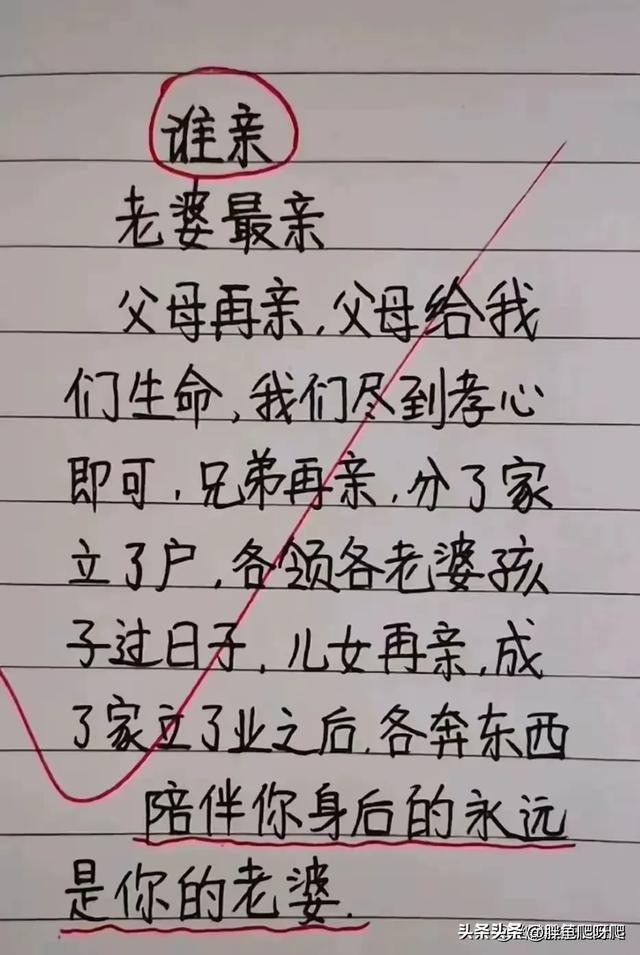 谁亲
老婆最亲
父母再亲，父母给我
们生命，我们尽到孝心
即可，兄弟再亲，分了家
立了户，各领各老婆孩
子过日子，儿女再亲，成
了家立了业之后．各奔东西
陪伴你身后的永远
是你的老婆．
头条头条 @胖鱼爬呀爬